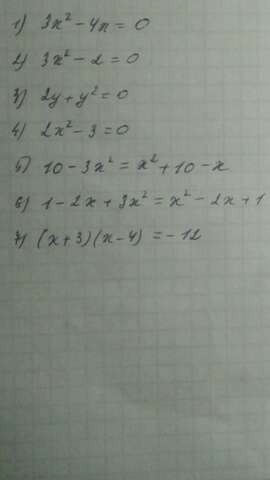 1) 3x² - 4x = 0
2) 3x² - 2 = 0
3) 2y + y² = 0
4) 2x² - 3 = 0
5) 10 - 3x² = x² + 10 - x
6) 1 - 2x + 3x² = x² - 2x + 1
7) (x + 3)(x - 4) = - 12